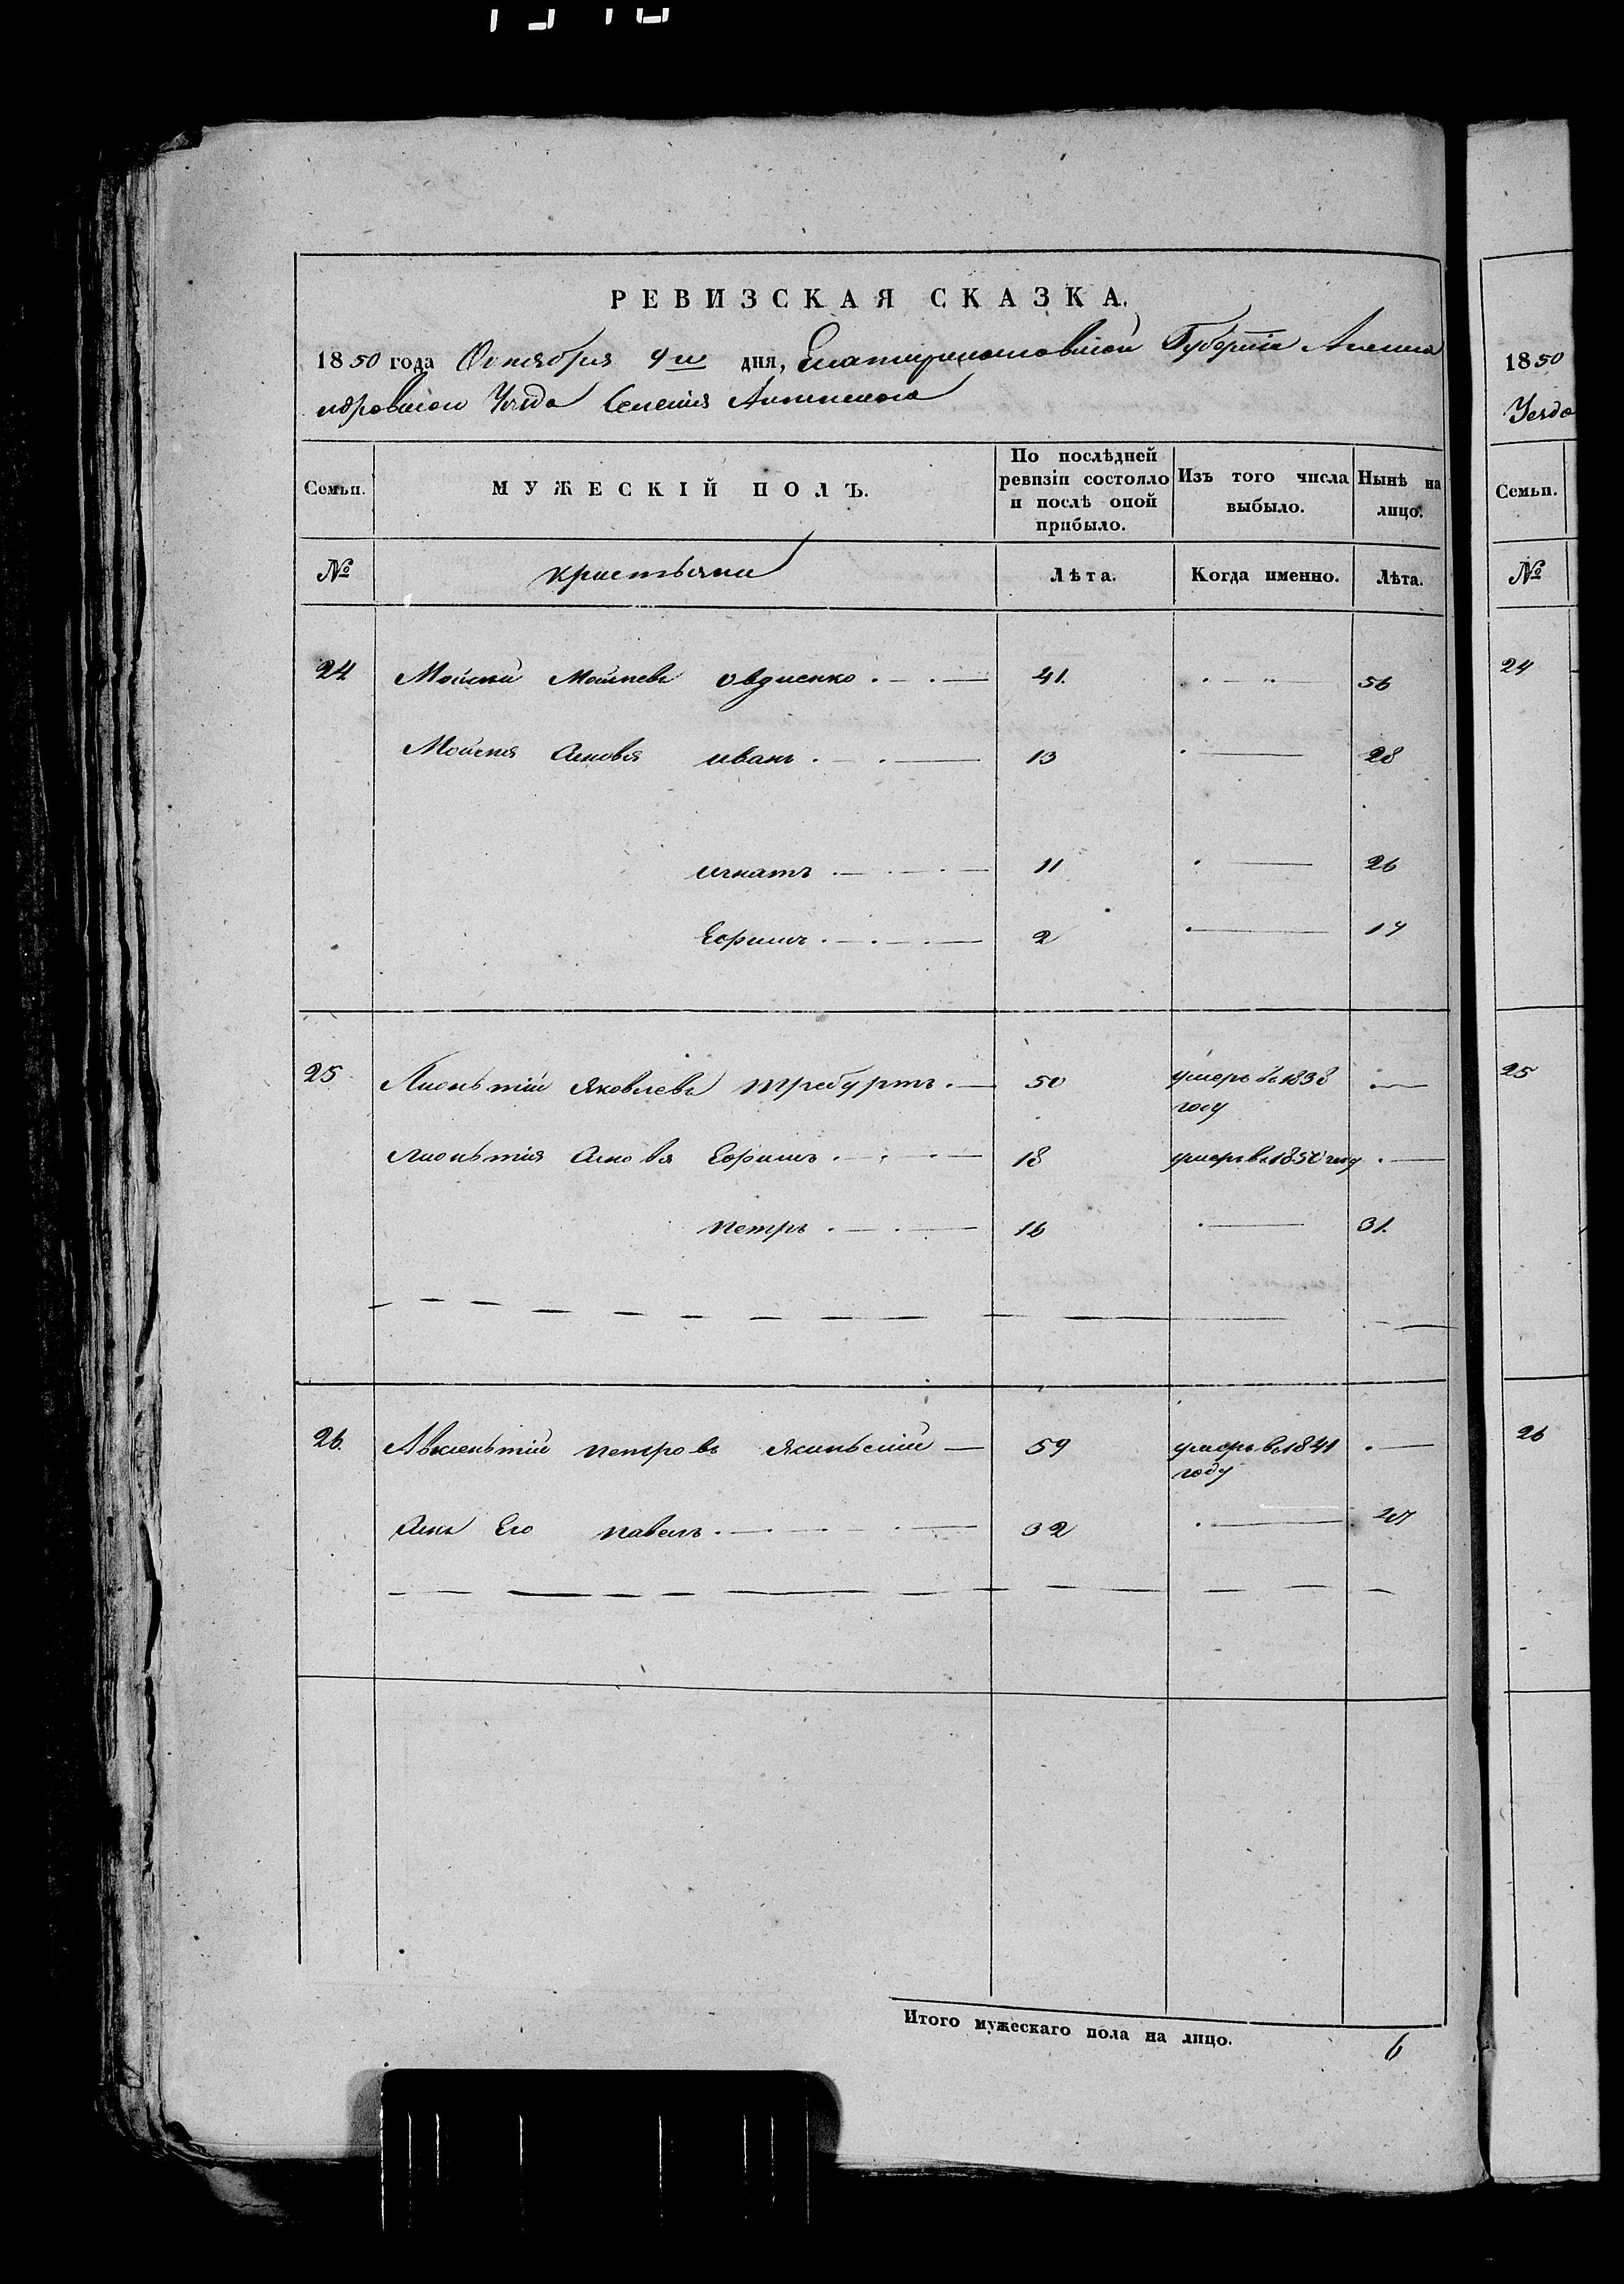 РЕВИЗСКАЯ СКАЗКА.
1850 года Октября 9го дня, Екатеринославской Губерніи Алекса
ндровскои Уезда Селенія
Семьи. МУЖЕСКІЙ ПОЛЪ. По послѣдней ревизіи состояло и послѣ оной прибыло. Изъ того числа выбыло. Нынѣ на лицо.
№ крестьяни Лѣта. Когда именно. Лѣта.
24 Мойсей Мойсеевъ Овдиенко . — . — 41. . — " — 56
Мойсея синовья иванъ . — . — 13 . — 28
игнатъ . — . — . — 11 . — 26
Ефримъ . — . — . — 2 . — 17
25 Лионьтіи Яковлевъ требуртъ . — 50 умеръ въ 1838 . —
году
Лионьтия синовя Ефримъ . — . — . — 18 умеръ въ 1850 году . —
петръ . — . — 16 . — 31.
26. Авксеньтіи петровъ Ясиньский — 59 умеръ въ 1841 . —
году
синъ Его павелъ . — . — . — 32 . — 47
Итого мужескаго пола на лицо. 6
1850
Уезда
Семьи.
№
24
25
26